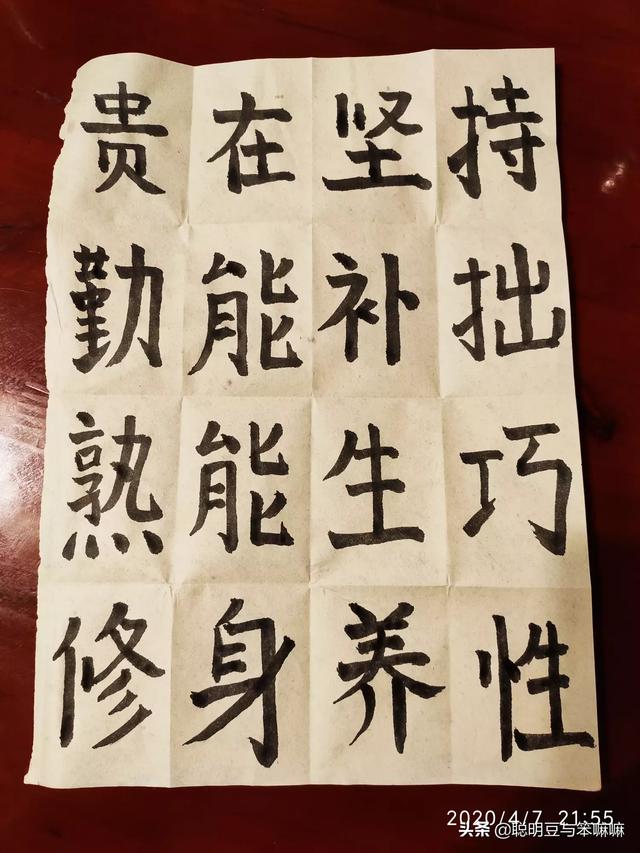 贵在坚持
勤能补拙
熟能生巧
修身养性
2020/4/7 21:55
头条 @聪明豆与笨嘛嘛